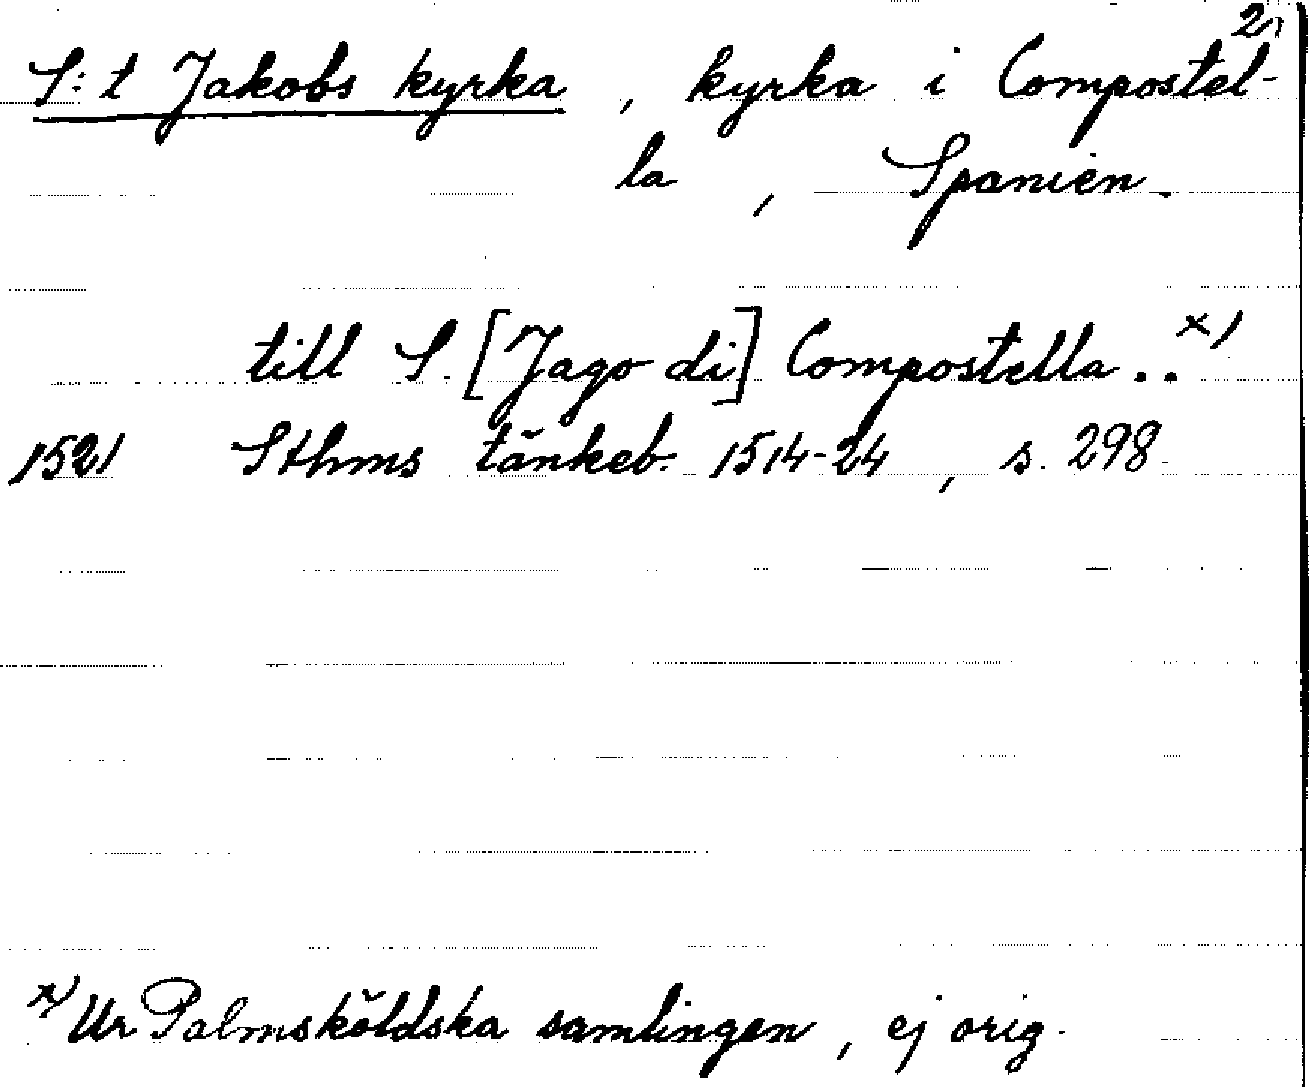 2)
S:t Jakobs kyrka, kyrka i Compostel-
la, Spanien.
till S. [Jago di] Compostella..x)
1521 Sthms tänkeb. 1514-24, s. 298
x) Ur Palmsköldska samlingen, ej orig.